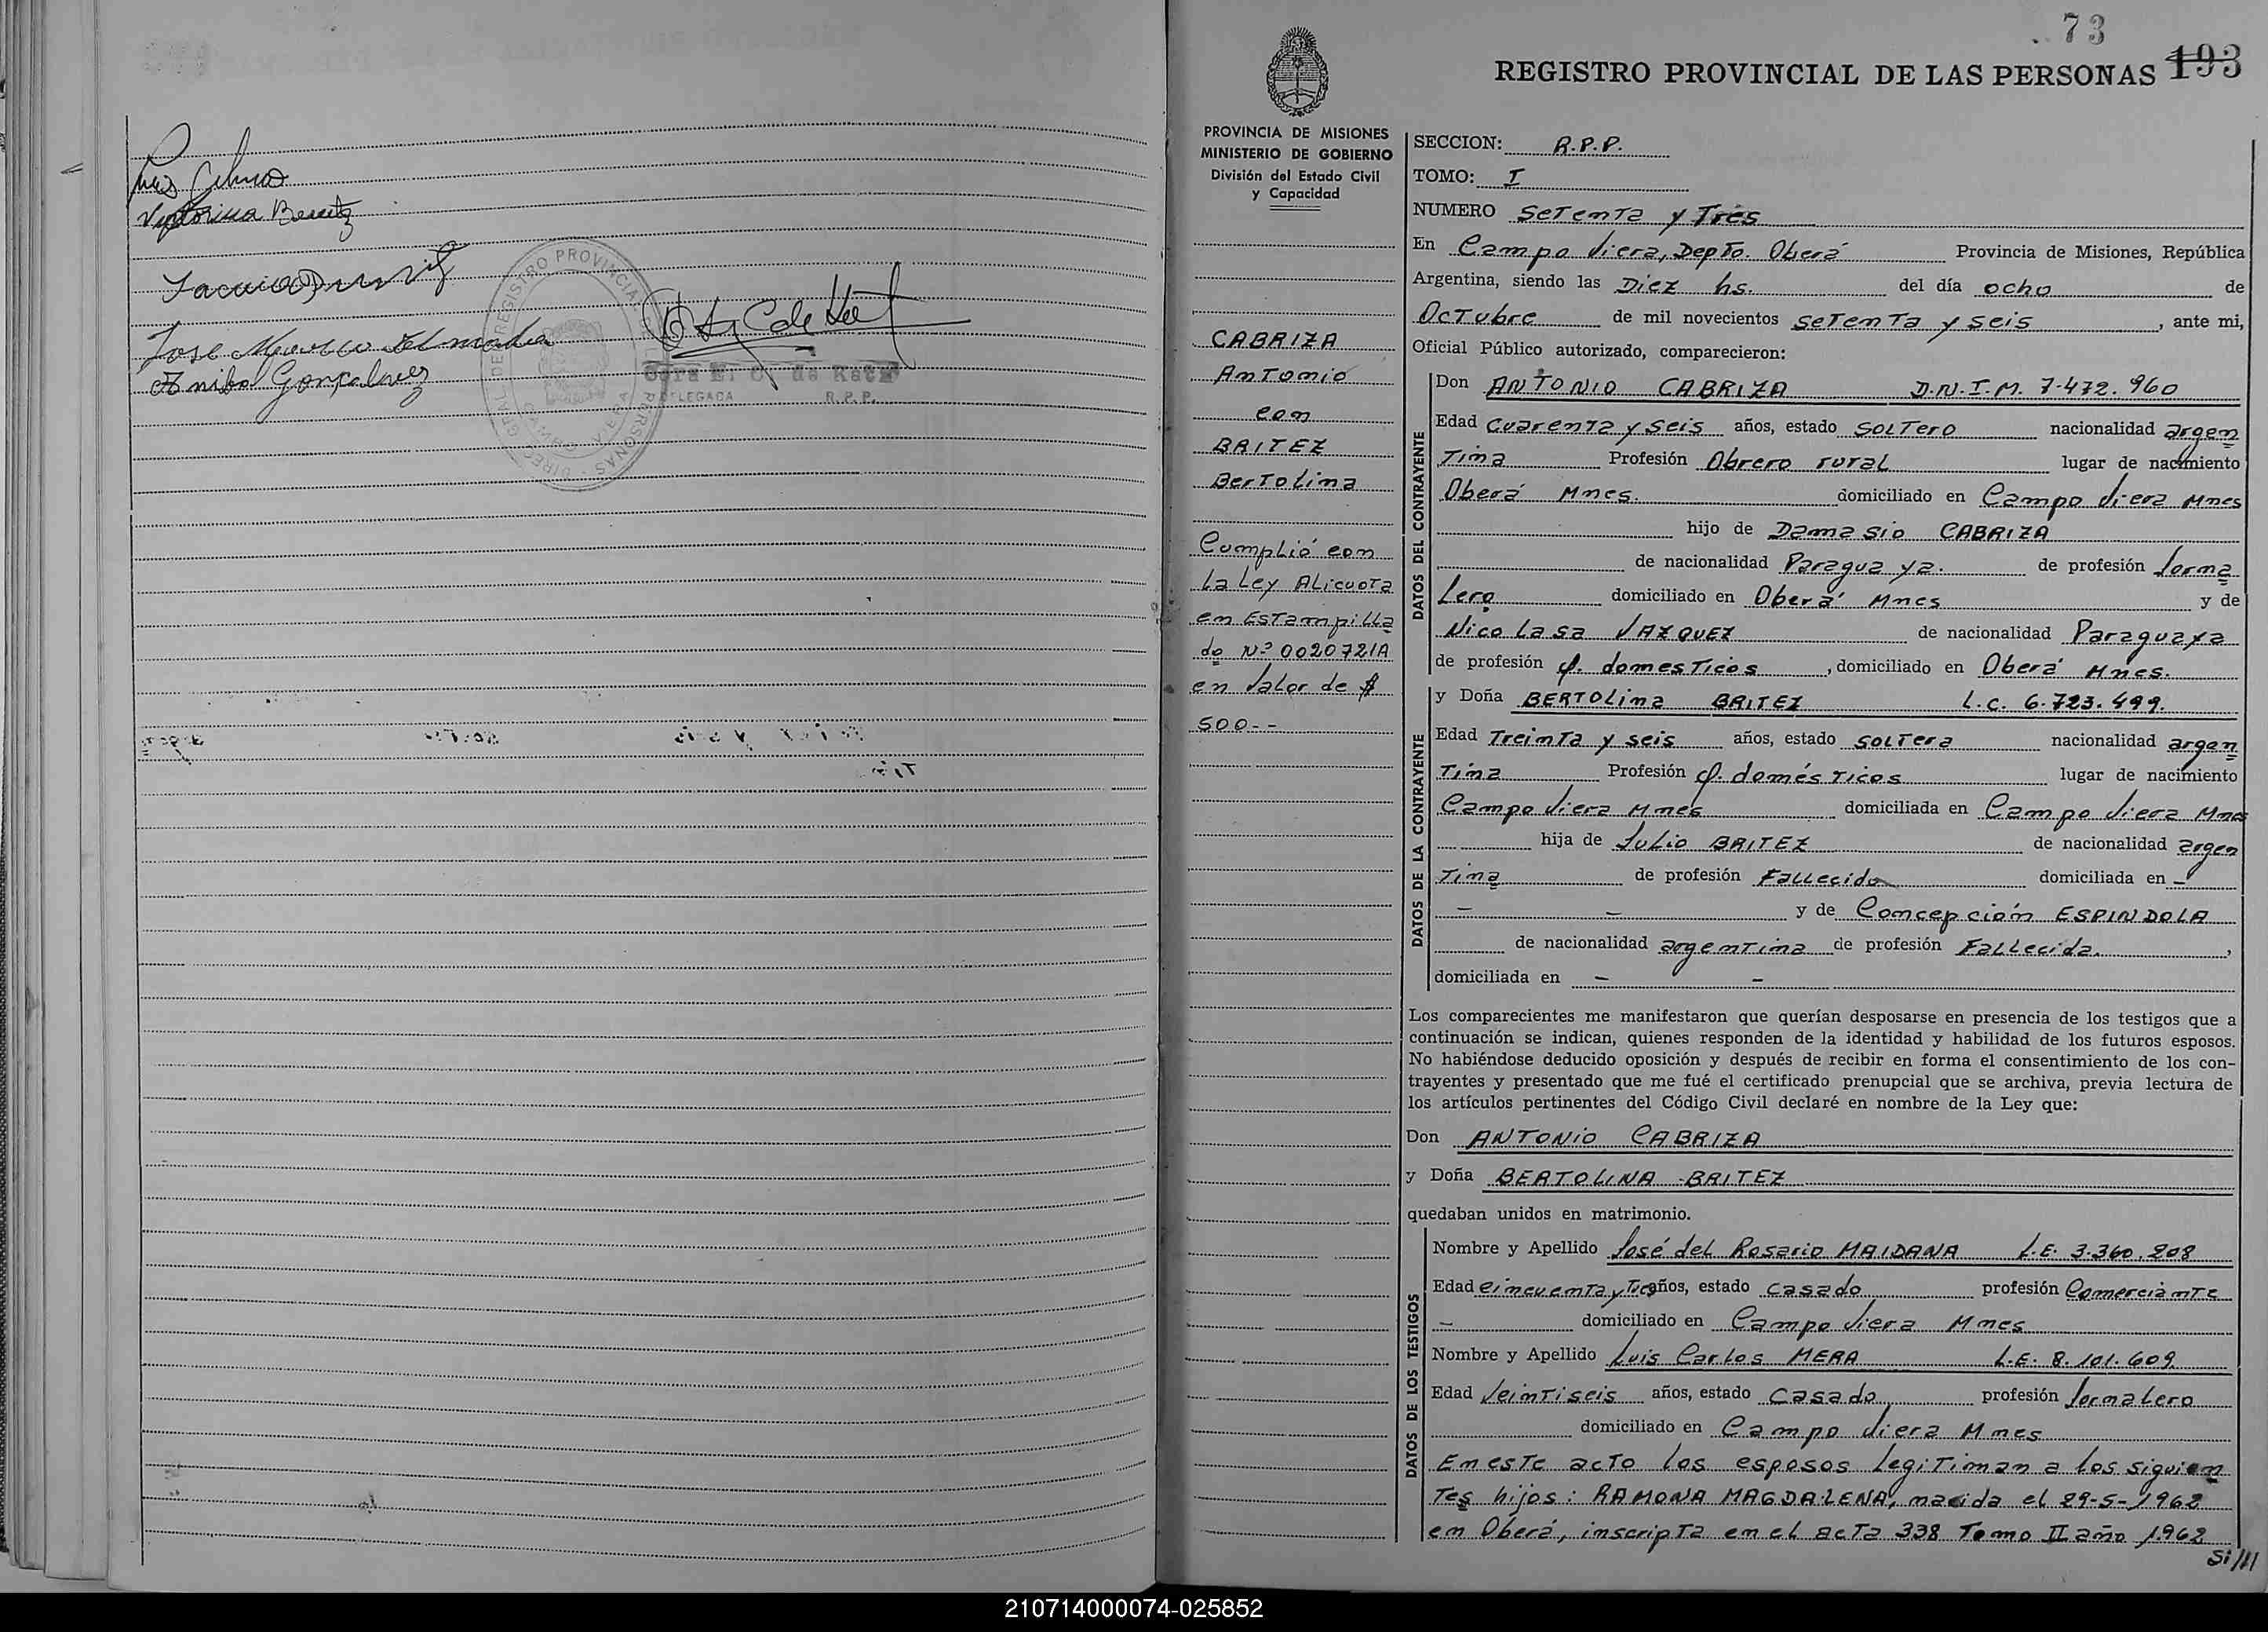 Victorina Benitez
Jose
Anibal Gonçalvez
REGISTRO PROVINCIAL DE LAS PERSONAS
DELEGADA R.P.P.
73
REGISTRO PROVINCIAL DE LAS PERSONAS 193
PROVINCIA DE MISIONES
MINISTERIO DE GOBIERNO
División del Estado Civil
y Capacidad
CABRIZA
Antonio
con
BRITEZ
Bertolina
Cumplió con
la Ley Alicuota
en Estampilla
do Nº 0020721A
en valor de $
500--
SECCION: R.P.P.
TOMO: I
NUMERO Setenta y Tres
En Campo Viera, Depto. Oberá Provincia de Misiones, República
Argentina, siendo las Diez hs. del día ocho de
Octubre de mil novecientos setenta y seis, ante mi,
Oficial Público autorizado, comparecieron:
DATOS DEL CONTRAYENTE
Don ANTONIO CABRIZA D.N.I.M. 7.472.960
Edad Cuarenta y seis años, estado soltero nacionalidad argen
tina Profesión Obrero rural lugar de nacimiento
Oberá Mnes. domiciliado en Campo Viera Mnes
hijo de Damasio CABRIZA
de nacionalidad Paraguaya. de profesión Jorna
lero domiciliado en Oberá Mnes y de
Nicolasa VAZQUEZ de nacionalidad Paraguaya
de profesión q. domesticos, domiciliado en Oberá Mnes.
DATOS DE LA CONTRAYENTE
y Doña BERTOLina BRITEZ L.C. 6.723.499.
Edad Treinta y seis años, estado soltera nacionalidad argen
tina Profesión q. domésticos lugar de nacimiento
Campo Viera Mnes domiciliada en Campo Viera Mnes
hija de Julio BRITEZ de nacionalidad argen
tina de profesión Fallecido domiciliada en -
- - y de Concepción ESPINDOLA
de nacionalidad argentina de profesión Fallecida,
domiciliada en - -
Los comparecientes me manifestaron que querían desposarse en presencia de los testigos que a
continuación se indican, quienes responden de la identidad y habilidad de los futuros esposos.
No habiéndose deducido oposición y después de recibir en forma el consentimiento de los con-
trayentes y presentado que me fué el certificado prenupcial que se archiva, previa lectura de
los artículos pertinentes del Código Civil declaré en nombre de la Ley que:
Don ANTONIO CABRIZA
y Doña BERTOLINA BRITEZ
quedaban unidos en matrimonio.
DATOS DE LOS TESTIGOS
Nombre y Apellido José del Rosario MAIDANA L.E. 3.360.208
Edad cincuenta y Tres años, estado casado profesión Comerciante
- domiciliado en Campo Viera Mnes
Nombre y Apellido Luis Carlos MERA L.E. 8.101.609
Edad Veintiseis años, estado casado profesión Jornalero
domiciliado en Campo Viera Mnes
En este acto los esposos legitiman a los siguien
tes hijos: RAMONA MAGDALENA, nacida el 29-5-1962
en Oberá, inscripta en el acta 338 Tomo II año 1962
si///
210714000074-025852